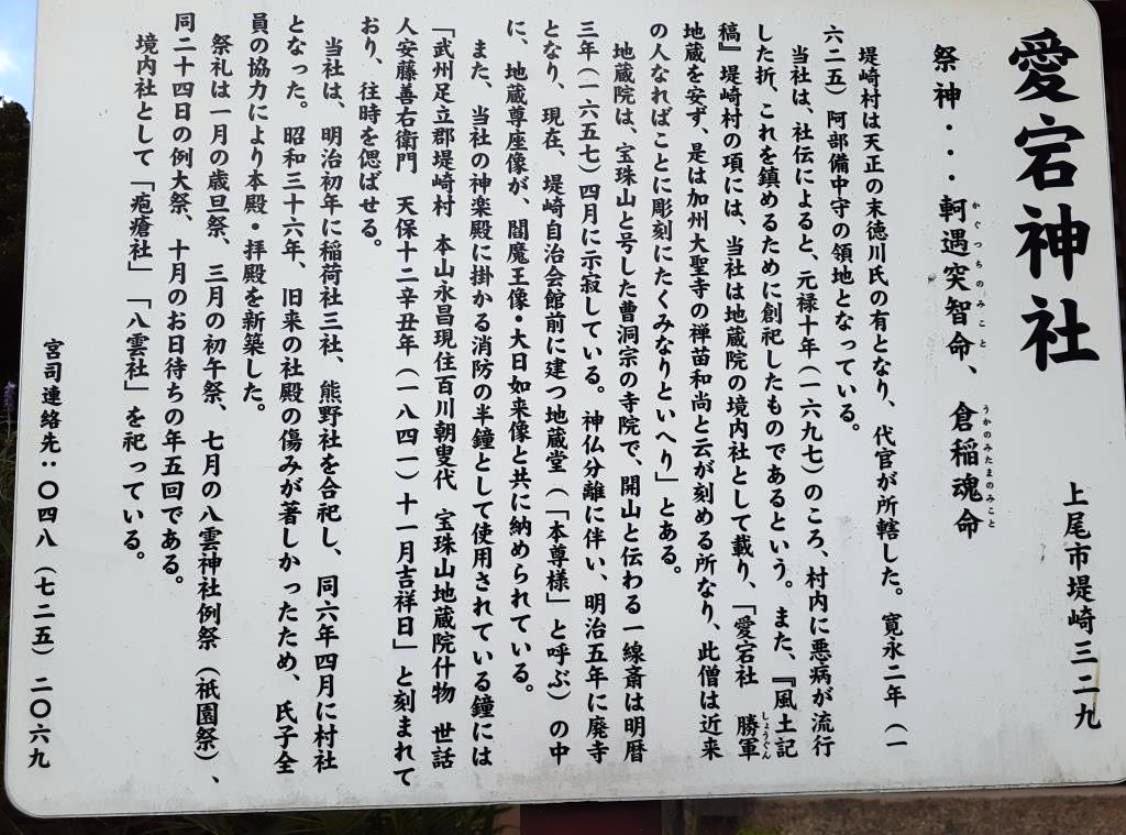 愛宕神社
上尾市堤崎三二九
祭神・・・軻遇突智命、倉稲魂命
かぐつちのみこと
うかのみたまのみこと
堤崎村は天正の末徳川氏の有となり、代官が所轄した。寛永二年（一
六二五）阿部備中守の領地となっている。
当社は、社伝によると、元禄十年（一六九七）のころ、村内に悪病が流行
した折、これを鎮めるために創祀したものであるという。また、『風土記
稿』堤崎村の項には、当社は地蔵院の境内社として載り、「愛宕社　勝軍
しょうぐん
地蔵を安ず、是は加州大聖寺の禅苗和尚と云が刻める所なり、此僧は近来
の人なればことに彫刻にたくみなりといへり」とある。
地蔵院は、宝珠山と号した曹洞宗の寺院で、開山と伝わる一線斎は明暦
三年（一六五七）四月に示寂している。神仏分離に伴い、明治五年に廃寺
となり、現在、堤崎自治会館前に建つ地蔵堂（「本尊様」と呼ぶ）の中
に、地蔵尊座像が、閻魔王像・大日如来像と共に納められている。
また、当社の神楽殿に掛かる消防の半鐘として使用されている鐘には
「武州足立郡堤崎村　本山永昌現住百川朝叟代　宝珠山地蔵院什物　世話
人安藤善右衛門　天保十二辛丑年（一八四一）十一月吉祥日」と刻まれて
おり、往時を偲ばせる。
当社は、明治初年に稲荷社三社、熊野社を合祀し、同六年四月に村社
となった。昭和三十六年、旧来の社殿の傷みが著しかったため、氏子全
員の協力により本殿・拝殿を新築した。
祭礼は一月の歳旦祭、三月の初午祭、七月の八雲神社例祭（祇園祭）、
同二十四日の例大祭、十月のお日待ちの年五回である。
境内社として「疱瘡社」「八雲社」を祀っている。
宮司連絡先：〇四八（七二五）二〇六九